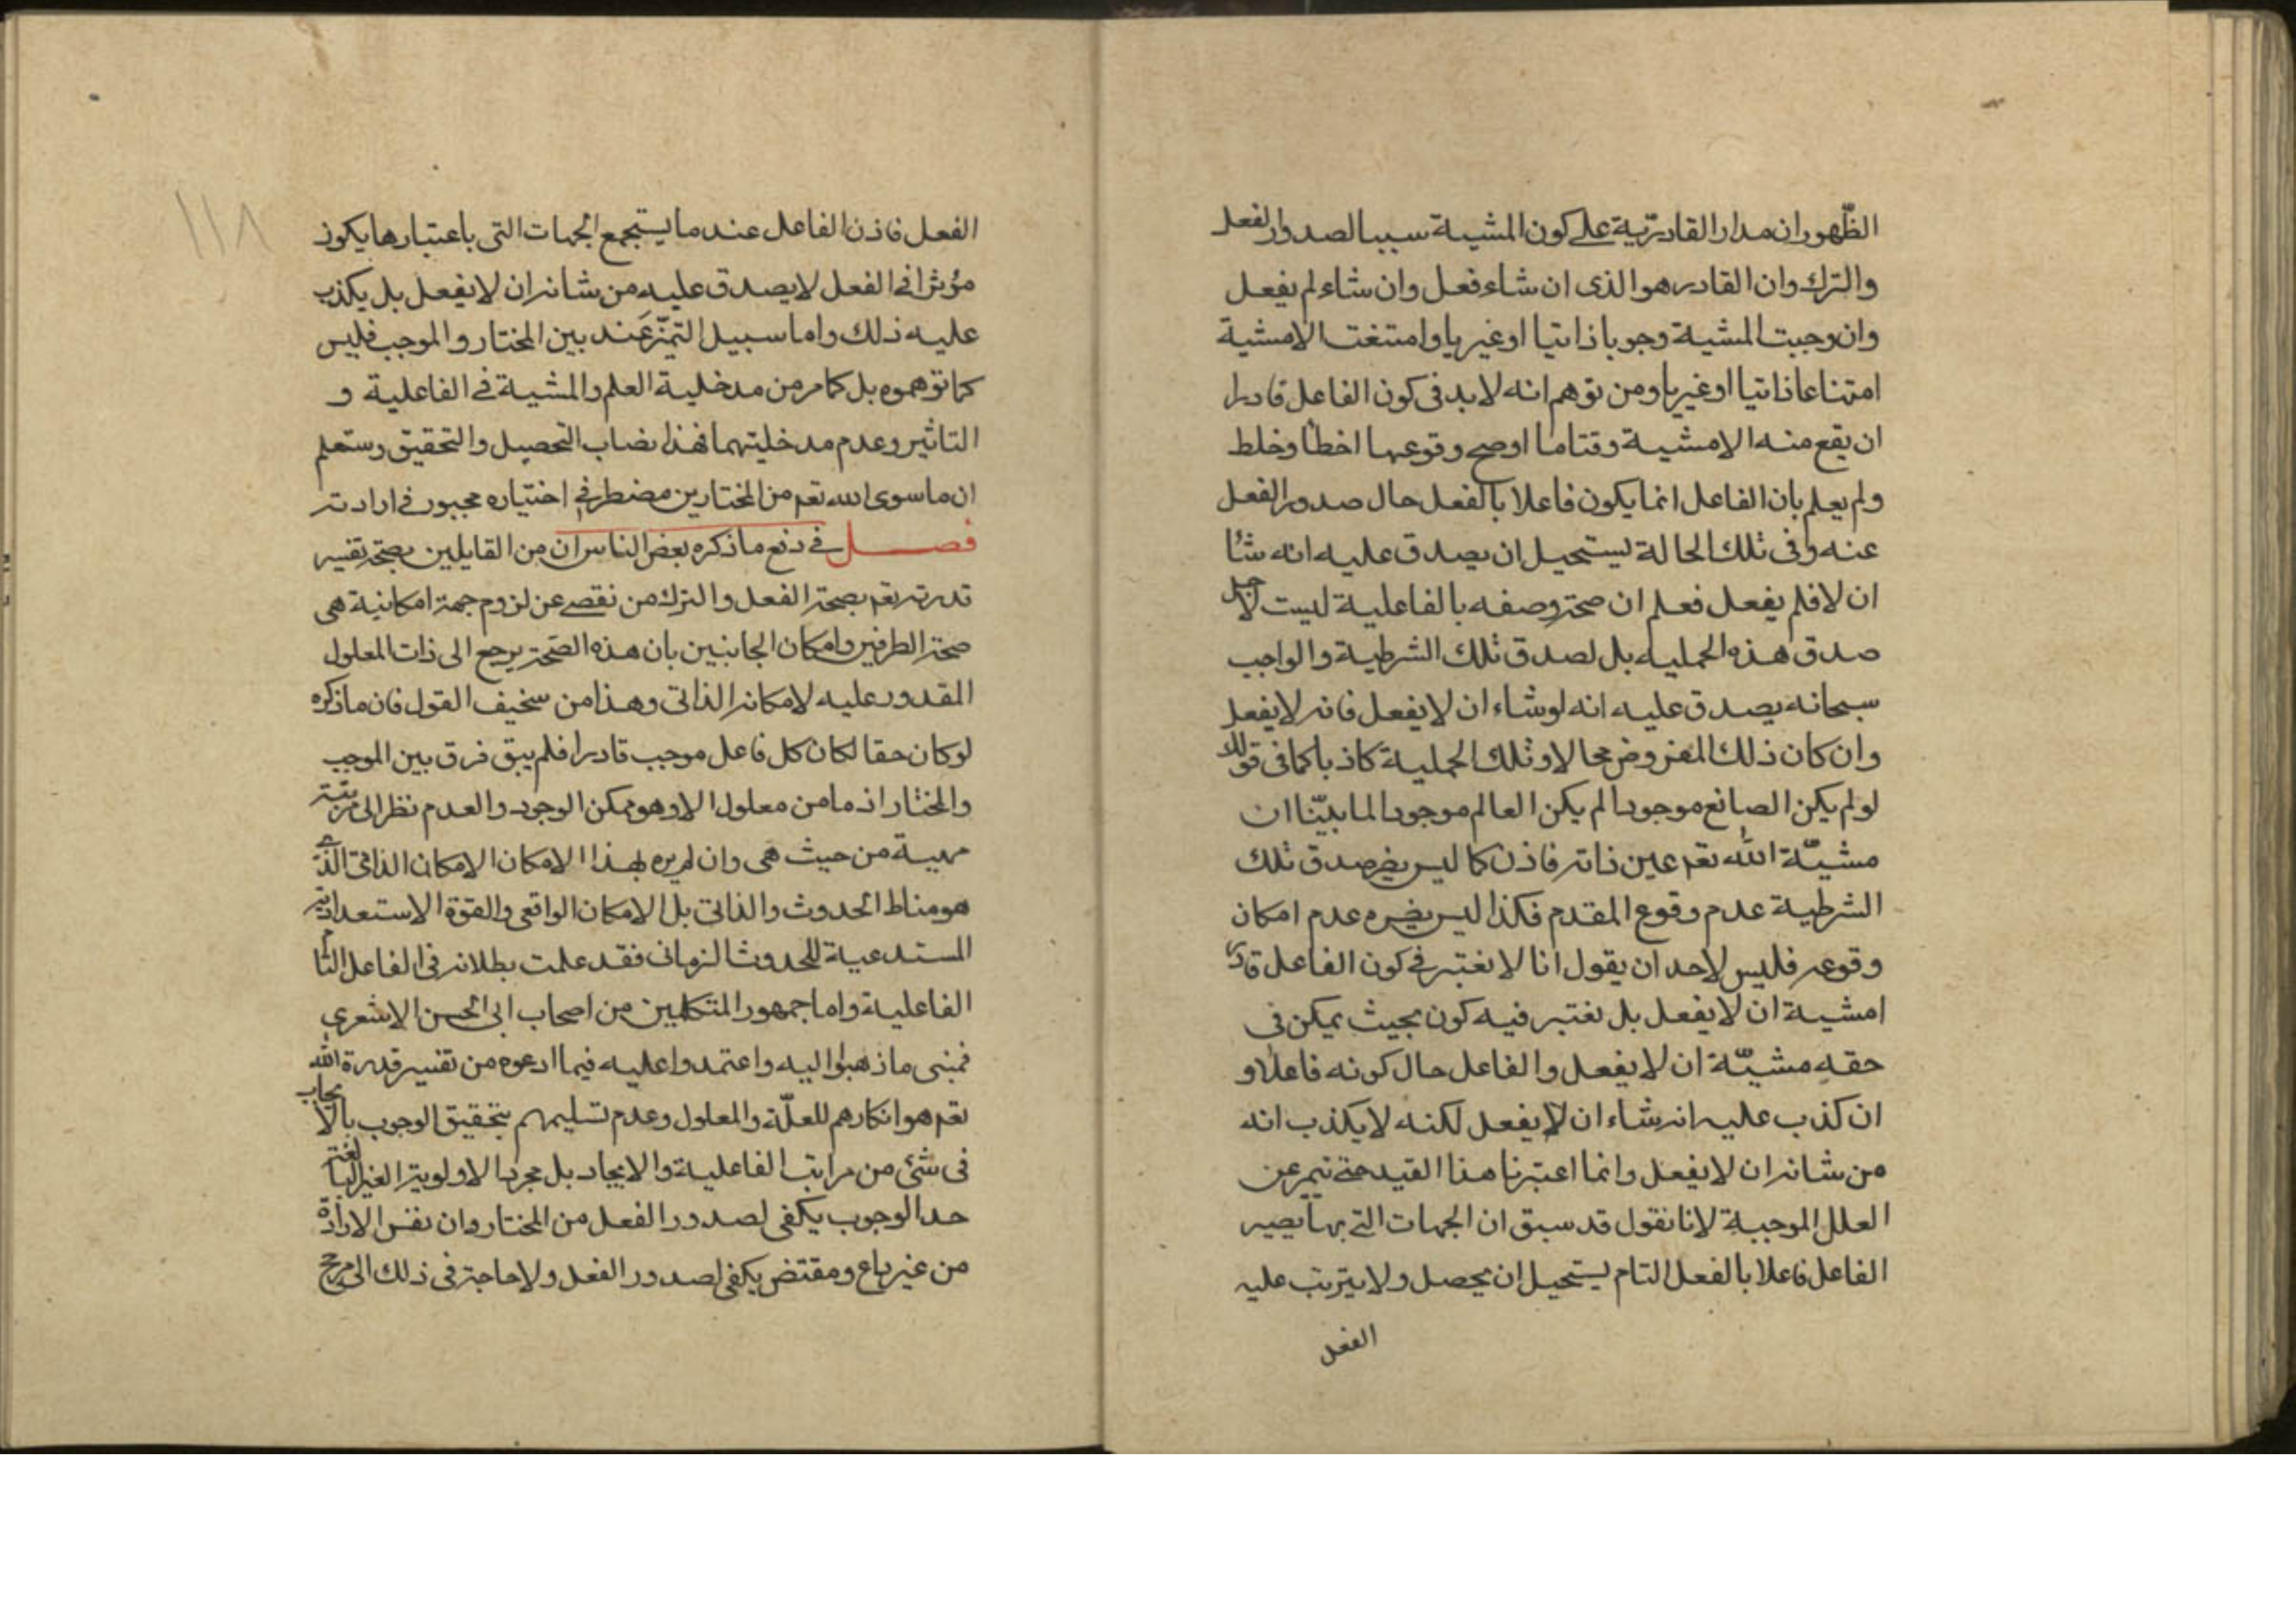 الظهور ان مدار القادرية على كون المشية سببا لصدور الفعل
والترك وان القادر هو الذى ان شاء فعل وان شاء لم يفعل
وان وجبت المشية وجوبا ذاتيا او غيريا وامتنعت الامشية
امتناعا ذاتيا او غيريا ومن توهم انه لا بد فى كون الفاعل قادرا
ان يقع منه الامشية وقتاما او صح وقوعها اخطأ وخلط
ولم يعلم بان الفاعل انما يكون فاعلا بالفعل حال صدور الفعل
عنه وفى تلك الحالة يستحيل ان يصدق عليه انه شاء
ان لا فلم يفعل فعلم ان صحة وصفه بالفاعلية ليست لاجل
صدق هذه الحملية بل لصدق تلك الشرطية والواجب
سبحانه يصدق عليه انه لو شاء ان لا يفعل فانه لا يفعل
وان كان ذلك المفروض محالا وتلك الحملية كاذبا كما فى قولك
لو لم يكن الصانع موجودا لم يكن العالم موجودا لما بيّنا ان
مشيّة الله تعم عين ذاته فاذن كما ليس يضر صدق تلك
الشرطية عدم وقوع المقدم فكذا ليس يضره عدم امكان
وقوعه فليس لاحد ان يقول انا لا نعتبر فى كون الفاعل قادرا
امشية ان لا يفعل بل نعتبر فيه كون بحيث يمكن فى
حقه مشيّة ان لا يفعل والفاعل حال كونه فاعلا و
ان كذب عليه انه شاء ان لا يفعل لكنه لا يكذب انه
من شانه ان لا يفعل وانما اعتبرنا هذا القيد حتى نميز عن
العلل الموجبة لانا نقول قد سبق ان الجهات التى بها يصير
الفاعل فاعلا بالفعل التام يستحيل ان يحصل ولا يترتب عليه
الفعل
١١٨
الفعل فاذن الفاعل عند ما يستجمع الجهات التى باعتبارها يكون
مؤثرا فى الفعل لا يصدق عليه من شانه ان لا يفعل بل يكذب
عليه ذلك واما سبيل التميّز عند بين المختار والموجب فليس
كما توهموه بل كما مر من مدخلية العلم والمشية فى الفاعلية و
التاثير وعدم مدخليتهما فهذا نصاب التحصيل والتحقيق وستعلم
ان ما سوى الله تعم من المختارين مضطر فى اختياره مجبور فى ارادته
فصل فى دفع ما ذكره بعض الناس ان من القايلين بصحة تفسير
قدرته تعم بصحة الفعل والترك من تفصى عن لزوم جهة امكانية هى
صحة الطرفين وامكان الجانبين بان هذه الصحة يرجع الى ذات المعلول
المقدور عليه لامكانه الذاتى وهذا من سخيف القول فان ما ذكره
لو كان حقا لكان كل فاعل موجب قادرا فلم يبق فرق بين الموجب
والمختار اذ ما من معلول الا وهو ممكن الوجود والعدم نظرا الى مرتبة
مهية من حيث هى وان لم يرد بهذا الامكان الامكان الذاتى الذى
هو مناط الحدوث والذاتى بل الامكان الواقعى والقوة الاستعدادية
المستدعية للحدوث الزمانى فقد علمت بطلانه فى الفاعل التام
الفاعلية واما جمهور المتكلمين من اصحاب ابى الحسن الاشعرى
فمبنى ما ذهبوا اليه واعتمدوا عليه فيما ادعوه من تفسير قدرة الله
تعم هو انكارهم للعلّة والمعلول وعدم تسليمهم بتحقيق الوجوب بالايجاب
فى شئ من مراتب الفاعلية والايجاد بل مجرد الاولوية الغير البالغة
حد الوجوب يكفى لصدور الفعل من المختار وان نفس الارادة
من غير داع ومقتض يكفى لصدور الفعل ولا حاجة فى ذلك الى مرجح